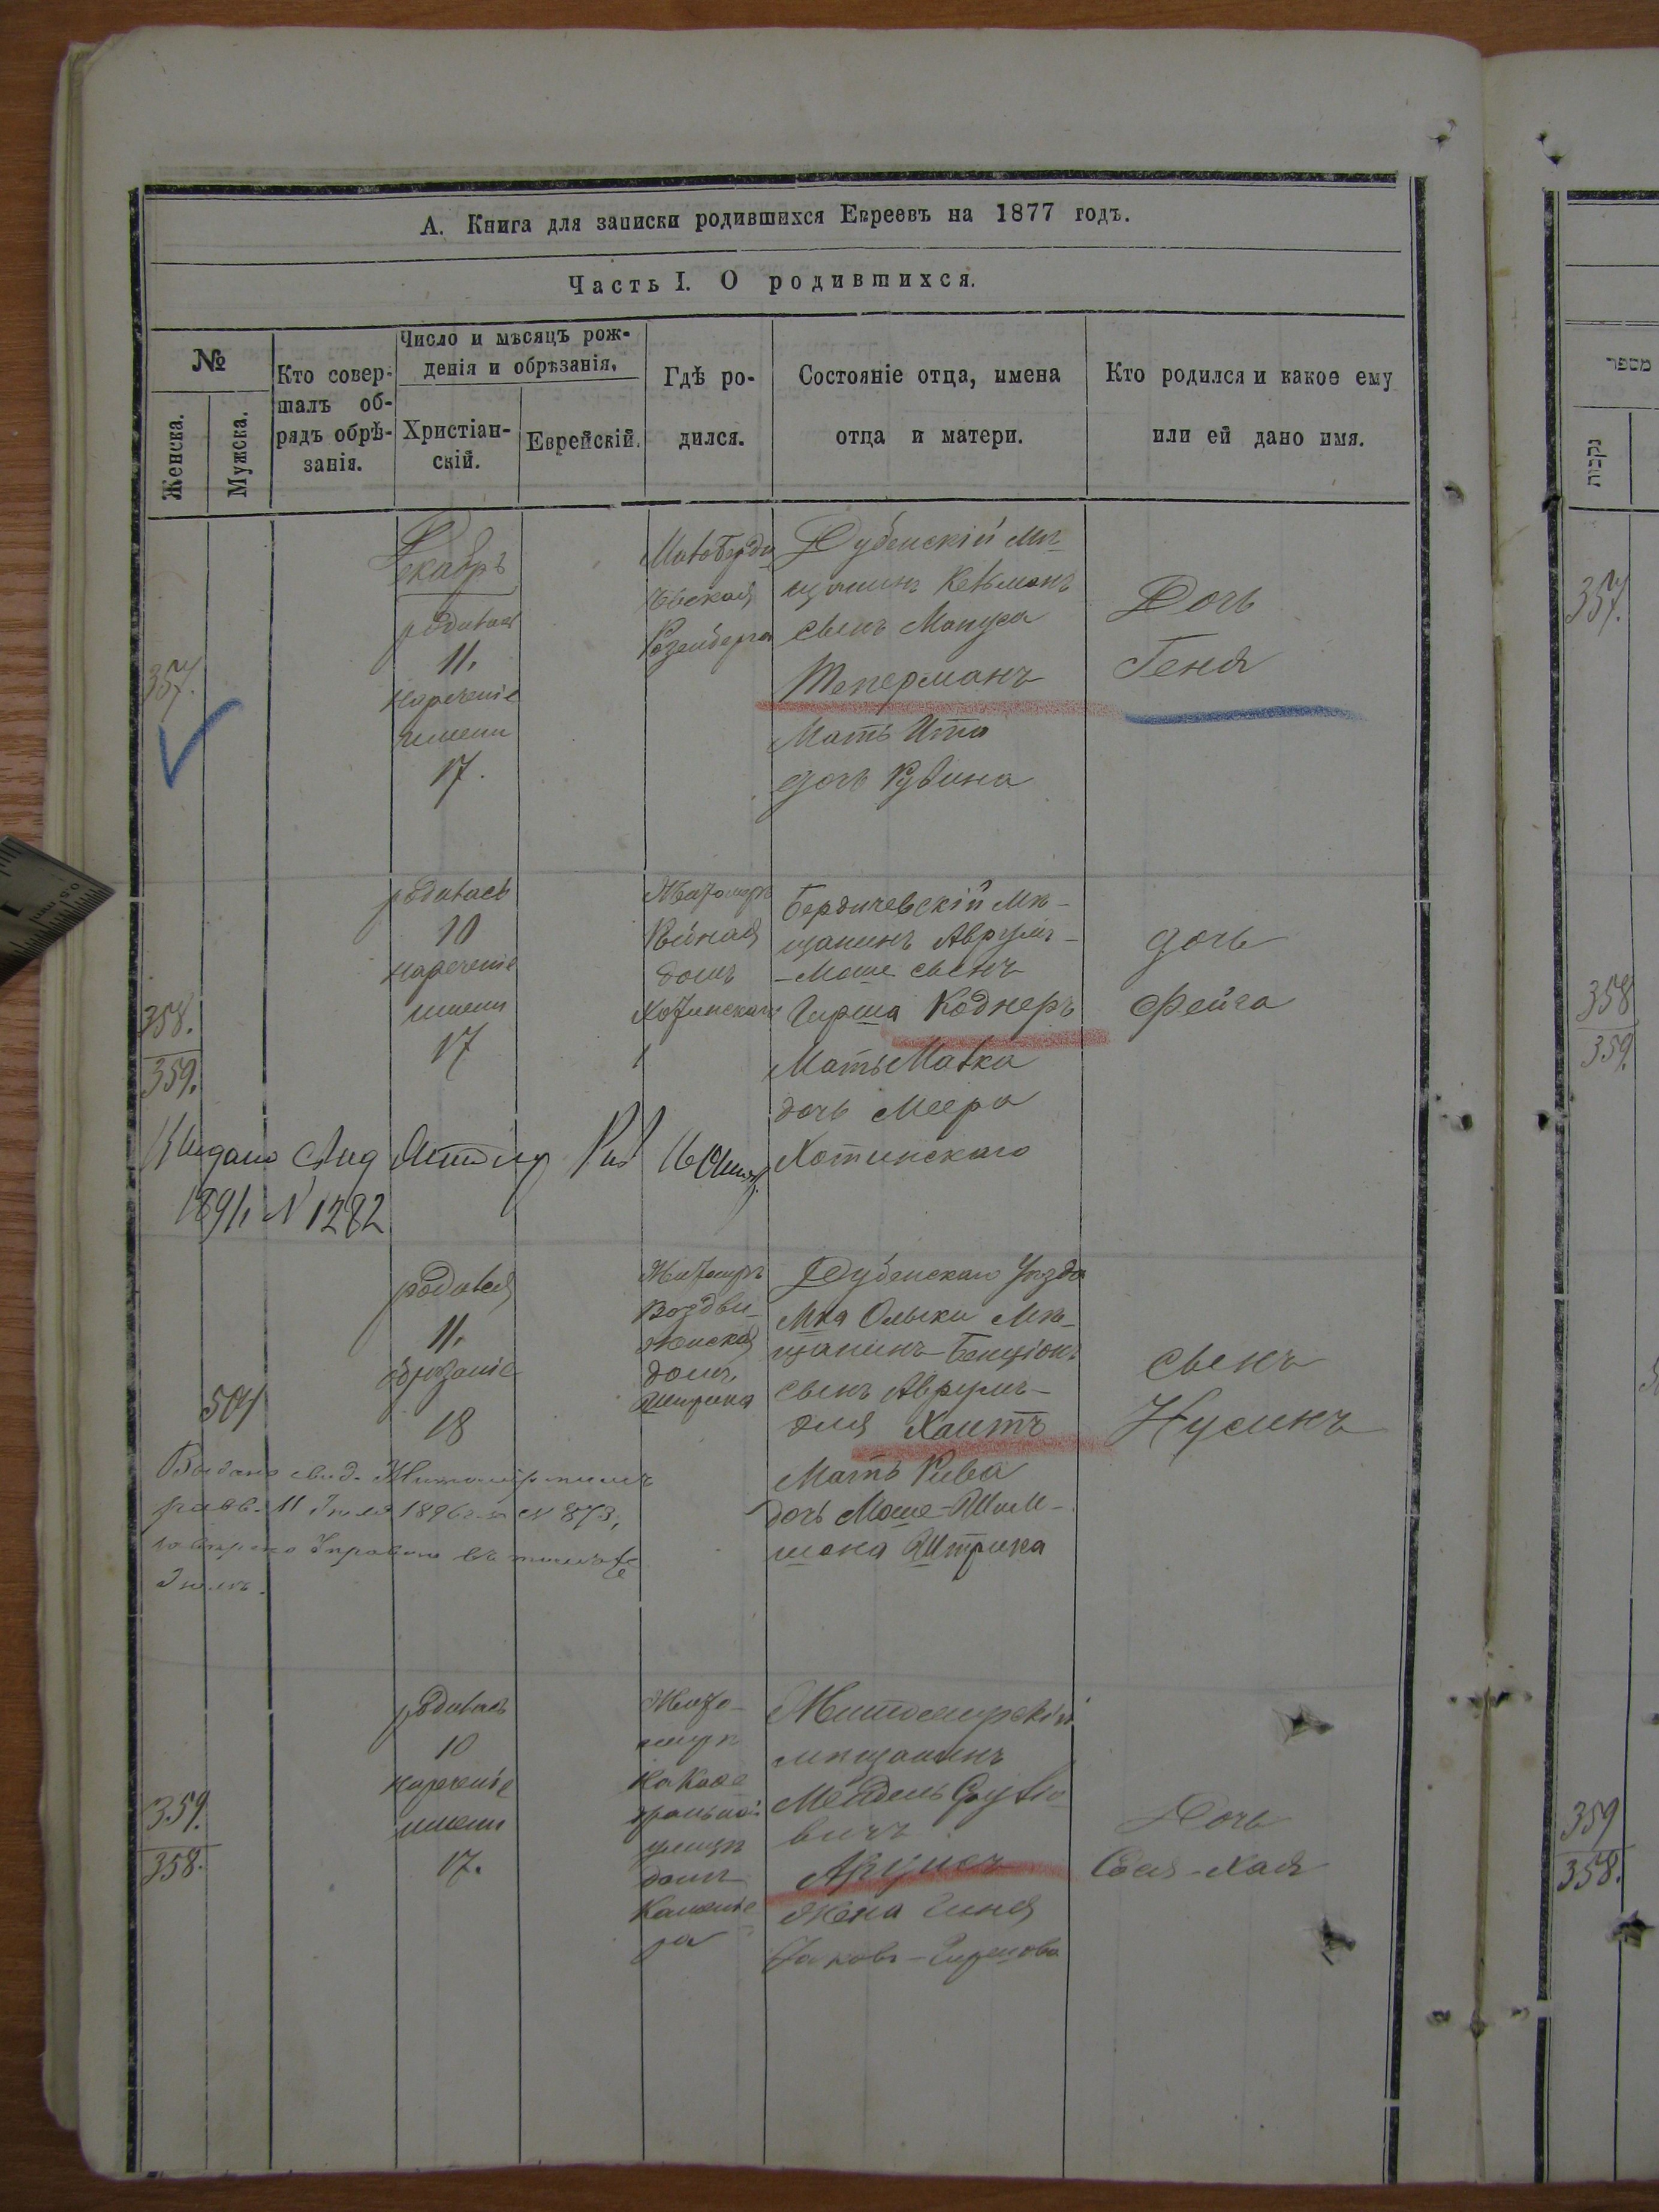 А. Книга для записки родившихся Евреевъ на 1877 годъ.
Часть I. О родившихся.
№
Женска.
Мужска.
Кто совер-
шалъ об-
рядъ обрѣ-
занія.
Число и мѣсяцъ рож-
денія и обрѣзанія.
Христіан-
скій.
Еврейскій.
Гдѣ ро-
дился.
Состояніе отца, имена
отца и матери.
Кто родился и какое ему
или ей дано имя.
357.
Декабрь
родилась
11.
нареченіе
имени
17.
Розенберга
Дубенскій Мѣ-
щанинъ Кельманъ
сынъ Мануса
Теперманъ
Мать Ита
дочь Рувина
Дочь
Геня
358.
359.
родилась
10
нареченіе
имени
17
Житомиръ
домъ
Хотинскаго
Бердичевскій Мѣ-
щанинъ Аврумъ-
-Моше сынъ
Гирша Коднеръ
Мать Малка
дочь Меера
Хотинскаго
дочь
Фейга
1891 № 1282
504
родился
11.
обрѣзаніе
18
Житомиръ
Воздви-
женская
домъ
Штрика
Дубенскаго Уѣзда
Мка Олыки Мѣ-
щанинъ Бенціонъ
сынъ Аврумъ-
Хаитъ
Мать Рива
дочь Моше-Шим-
шона Штрика
сынъ
Нусинъ
Выдано свид. Житомірскимъ
равв. 11 Іюля 1896 г. за № 873,
Іюлѣ.
359.
358.
родилась
10
нареченіе
имени
17.
Жито-
мирѣ
на Каѳе
дральной
улицѣ
домъ
Житомирскій
мѣщанинъ
Мендель
вичъ
Жена Гиня
Яковъ-Гиршова
Дочь
Хая
מספר
נקבות
357.
358
359.
359
358.